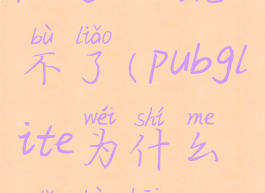 bù liǎo
不了(pubgl
wéi shí me
ite为什么